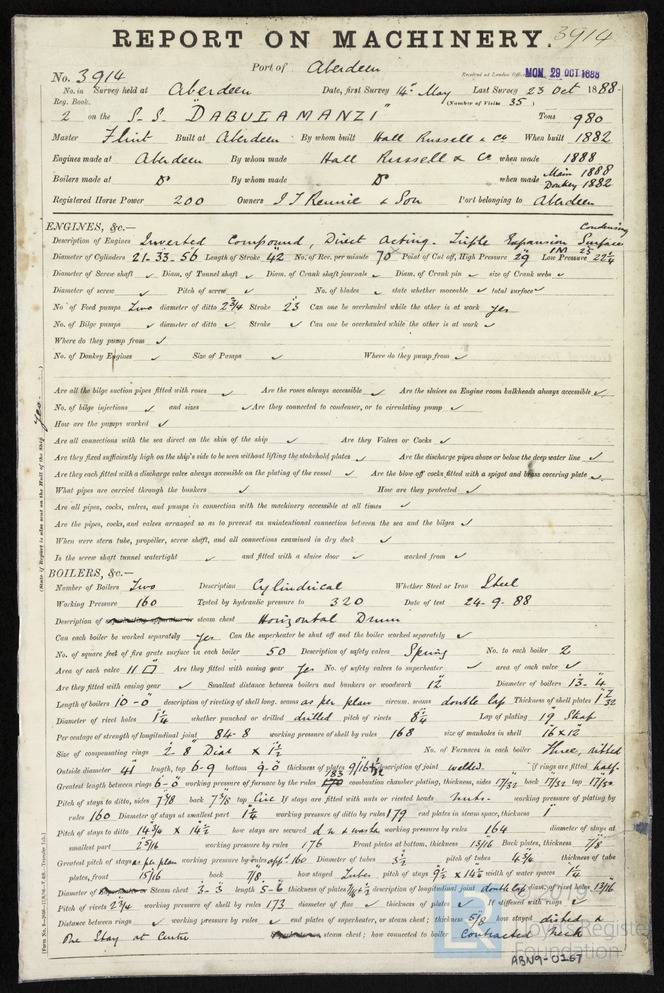 REPORT ON MACHINERY. 3914
Port of Aberdeen
No. 3914 Received at London Office MON. 29 OCT 1888
No. in Survey held at Aberdeen Date, first Survey 14th May Last Survey 23 Oct 1888
Reg. Book. (Number of Visits 35)
2 on the S.S. "DABULAMANZI" Tons 980
Master Flint Built at Aberdeen By whom built Hall Russell & Co When built 1882
Engines made at Aberdeen By whom made Hall Russell & Co when made 1888
Boilers made at Do By whom made Do when made Main 1888 Donkey 1882
Registered Horse Power 200 Owners J T Rennie & Son Port belonging to Aberdeen
ENGINES, &c.—
Description of Engines Inverted Compound, Direct Acting. Triple Expansion Surface Condensing
Diameter of Cylinders 21-33-56 Length of Stroke 42 No. of Rev. per minute 70 Point of Cut off, High Pressure 29 IM 25 Low Pressure 22¼
Diameter of Screw shaft ✓ Diam. of Tunnel shaft ✓ Diam. of Crank shaft journals ✓ Diam. of Crank pin ✓ size of Crank webs ✓
Diameter of screw ✓ Pitch of screw ✓ No. of blades ✓ state whether moveable ✓ total surface ✓
No. of Feed pumps Two diameter of ditto 2¾ Stroke 23 Can one be overhauled while the other is at work yes
No. of Bilge pumps ✓ diameter of ditto ✓ Stroke ✓ Can one be overhauled while the other is at work ✓
Where do they pump from ✓
No. of Donkey Engines ✓ Size of Pumps ✓ Where do they pump from ✓
Are all the bilge suction pipes fitted with roses ✓ Are the roses always accessible ✓ Are the sluices on Engine room bulkheads always accessible ✓
No. of bilge injections ✓ and sizes ✓ Are they connected to condenser, or to circulating pump ✓
How are the pumps worked ✓
Are all connections with the sea direct on the skin of the ship ✓ Are they Valves or Cocks ✓
Are they fixed sufficiently high on the ship's side to be seen without lifting the stokehold plates ✓ Are the discharge pipes above or below the deep water line ✓
Are they each fitted with a discharge valve always accessible on the plating of the vessel ✓ Are the blow off cocks fitted with a spigot and brass covering plate ✓
What pipes are carried through the bunkers ✓ How are they protected ✓
Are all pipes, cocks, valves, and pumps in connection with the machinery accessible at all times ✓
Are the pipes, cocks, and valves arranged so as to prevent an unintentional connection between the sea and the bilges ✓
When were stern tube, propeller, screw shaft, and all connections examined in dry dock ✓
Is the screw shaft tunnel watertight ✓ and fitted with a sluice door ✓ worked from ✓
(State if Report is also sent on the Hull of the Ship) Yes.
BOILERS, &c.—
Number of Boilers Two Description Cylindrical Whether Steel or Iron Steel
Working Pressure 160 Tested by hydraulic pressure to 320 Date of test 24-9-88
Description of steam chest Horizontal Drum
Can each boiler be worked separately yes Can the superheater be shut off and the boiler worked separately ✓
No. of square feet of fire grate surface in each boiler 50 Description of safety valves Spring No. to each boiler 2
Area of each valve 11 □ Are they fitted with easing gear yes No. of safety valves to superheater ✓ area of each valve ✓
Are they fitted with easing gear ✓ Smallest distance between boilers and bunkers or woodwork 12 Diameter of boilers 13-4
Length of boilers 10-0 description of riveting of shell long. seams as per plan circum. seams double lap Thickness of shell plates 1 7/32
Diameter of rivet holes 1¼ whether punched or drilled drilled pitch of rivets 8¼ Lap of plating 19 Strap
Per centage of strength of longitudinal joint 84-8 working pressure of shell by rules 168 size of manholes in shell 16 x 12
Size of compensating rings 2-8 Diar x 1½ No. of Furnaces in each boiler Three, ribbed
Outside diameter 41 length, top 6-9 bottom 9-0 thickness of plates 9/16 description of joint welded. if rings are fitted half.
Greatest length between rings 6-0 working pressure of furnace by the rules 183 combustion chamber plating, thickness, sides 17/32 back 17/32 top 17/32
Pitch of stays to ditto, sides 7⅞ back 7⅞ top Circ If stays are fitted with nuts or riveted heads nuts. working pressure of plating by
rules 160 Diameter of stays at smallest part 1¼ working pressure of ditto by rules 179 end plates in steam space, thickness 1"
Pitch of stays to ditto 14¾ x 14½ how stays are secured d n & washr working pressure by rules 164 diameter of stays at
smallest part 2 5/16 working pressure by rules 176 Front plates at bottom, thickness 13/16 Back plates, thickness 7/8
Greatest pitch of stays as per plan working pressure by rules 160 Diameter of tubes 3½ pitch of tubes 4¾ thickness of tube
plates, front 15/16 back 7/8. how stayed Tubes pitch of stays 9½ x 14½ width of water spaces 1¼
Diameter of Steam chest 3-3 length 5-6 thickness of plates description of longitudinal joint double lap diam. of rivet holes 13/16
Pitch of rivets 2¾ working pressure of shell by rules 173 diameter of flue ✓ thickness of plates ✓ If stiffened with rings ✓
Distance between rings ✓ working pressure by rules ✓ end plates of superheater, or steam chest; thickness 5/8 how stayed dished &
One Stay at Centre steam chest; how connected to boiler Contracted Neck
© 2019
LR
Lloyd's Register
Foundation
ABN9-0267